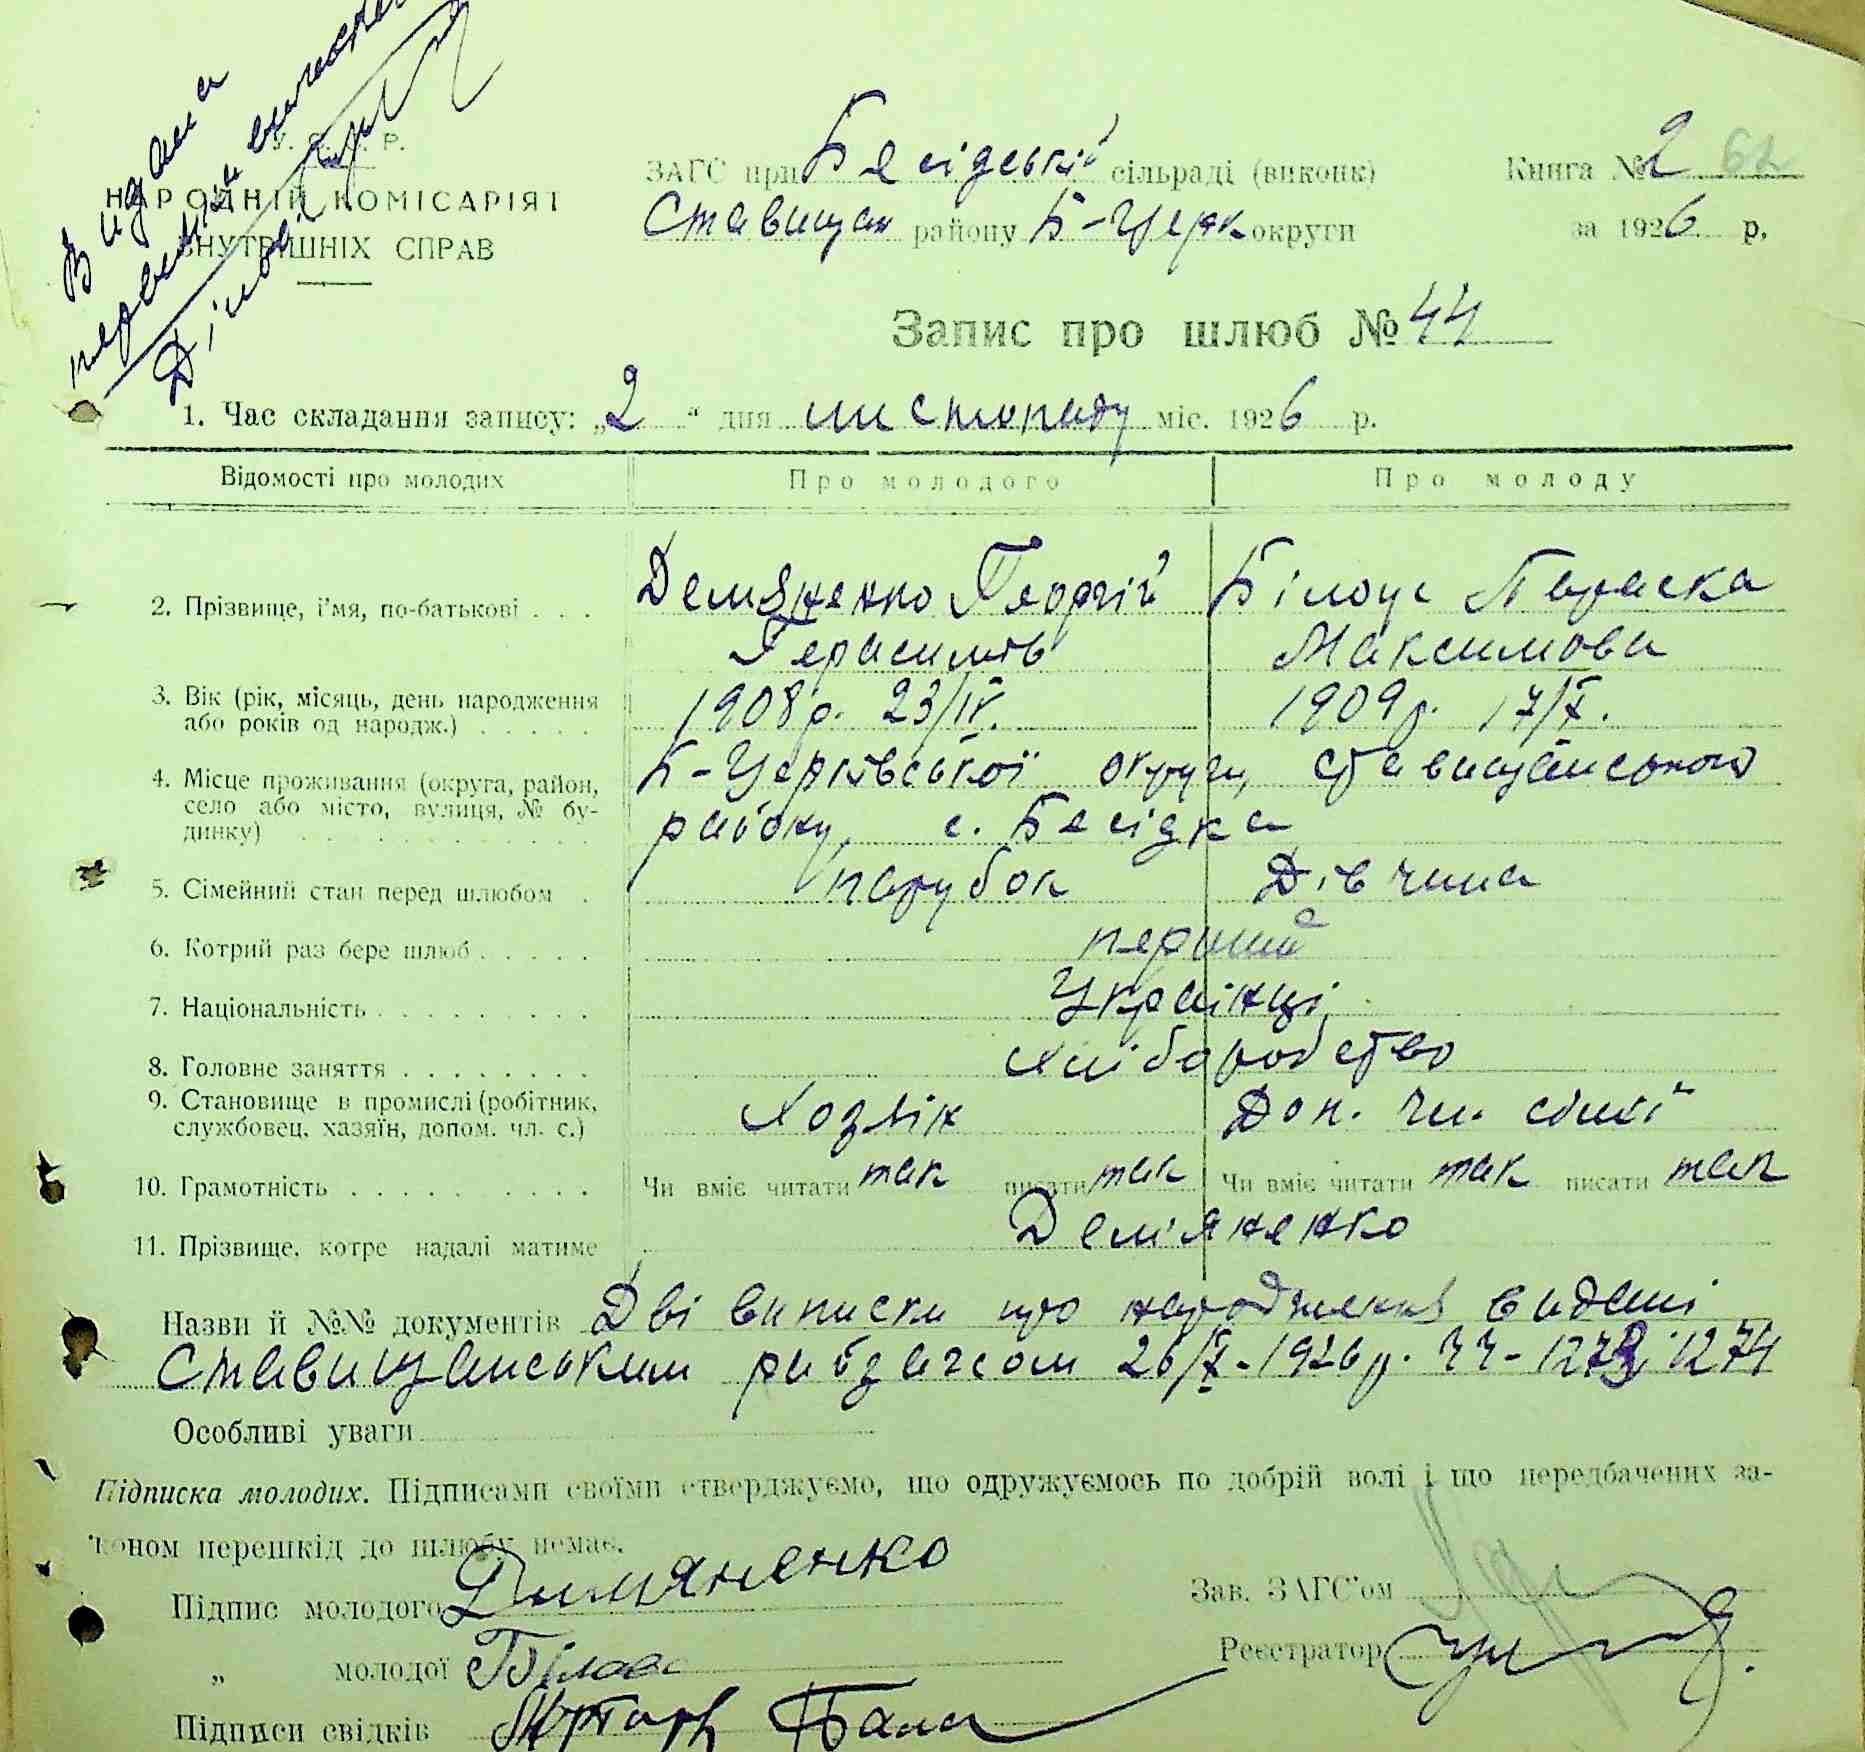 Видана
У. С. Р. Р.
НАРОДНІЙ КОМІСАРІЯТ
ВНУТРІШНІХ СПРАВ
ЗАГС при Бесідській сільраді (виконк)
Ставищан району Б-Церк округи
Книга № 2 62
за 1926 р.
Запис про шлюб № 44
1. Час складання запису: „2“ дня листопаду міс. 1926 р.
Відомості про молодих Про молодого Про молоду
2. Прізвище, і'мя, по-батькові . . . Демяненко Георгій Білоус Параска
Герасимів Максимова
3. Вік (рік, місяць, день народження 1908р. 23/IV. 1909р. 17/X.
або років од народж.) . . . . .
4. Місце проживання (округа, район, Б-Церківської округи, ставищанського
село або місто, вулиця, № бу- району, с. Бесідка
динку) . . . . . . . . . . . .
5. Сімейний стан перед шлюбом . парубок Дівчина
6. Котрий раз бере шлюб . . . . . перший
7. Національність . . . . . . . . . Українці
8. Головне заняття . . . . . . . . хліборобство
9. Становище в промислі (робітник, Хозяін Доп. чл. сімї
службовец, хазяїн, допом. чл. с.)
10. Грамотність . . . . . . . . . . Чи вміє читати так писати так Чи вміє читати так писати так
11. Прізвище, котре надалі матиме Дем'яненко
Назви й №№ документів Дві виписки про народження видані
Ставищанським райзагсом 26/X-1926р. 1273, 1274
Особливі уваги
Підписка молодих. Підписами своїми стверджуємо, що одружуємось по добрій волі і що передбачених за-
коном перешкід до шлюбу немає.
Підпис молодого Димяненко
Зав. ЗАГС'ом
„ молодої Білоус
Реєстратор
Підписи свідків